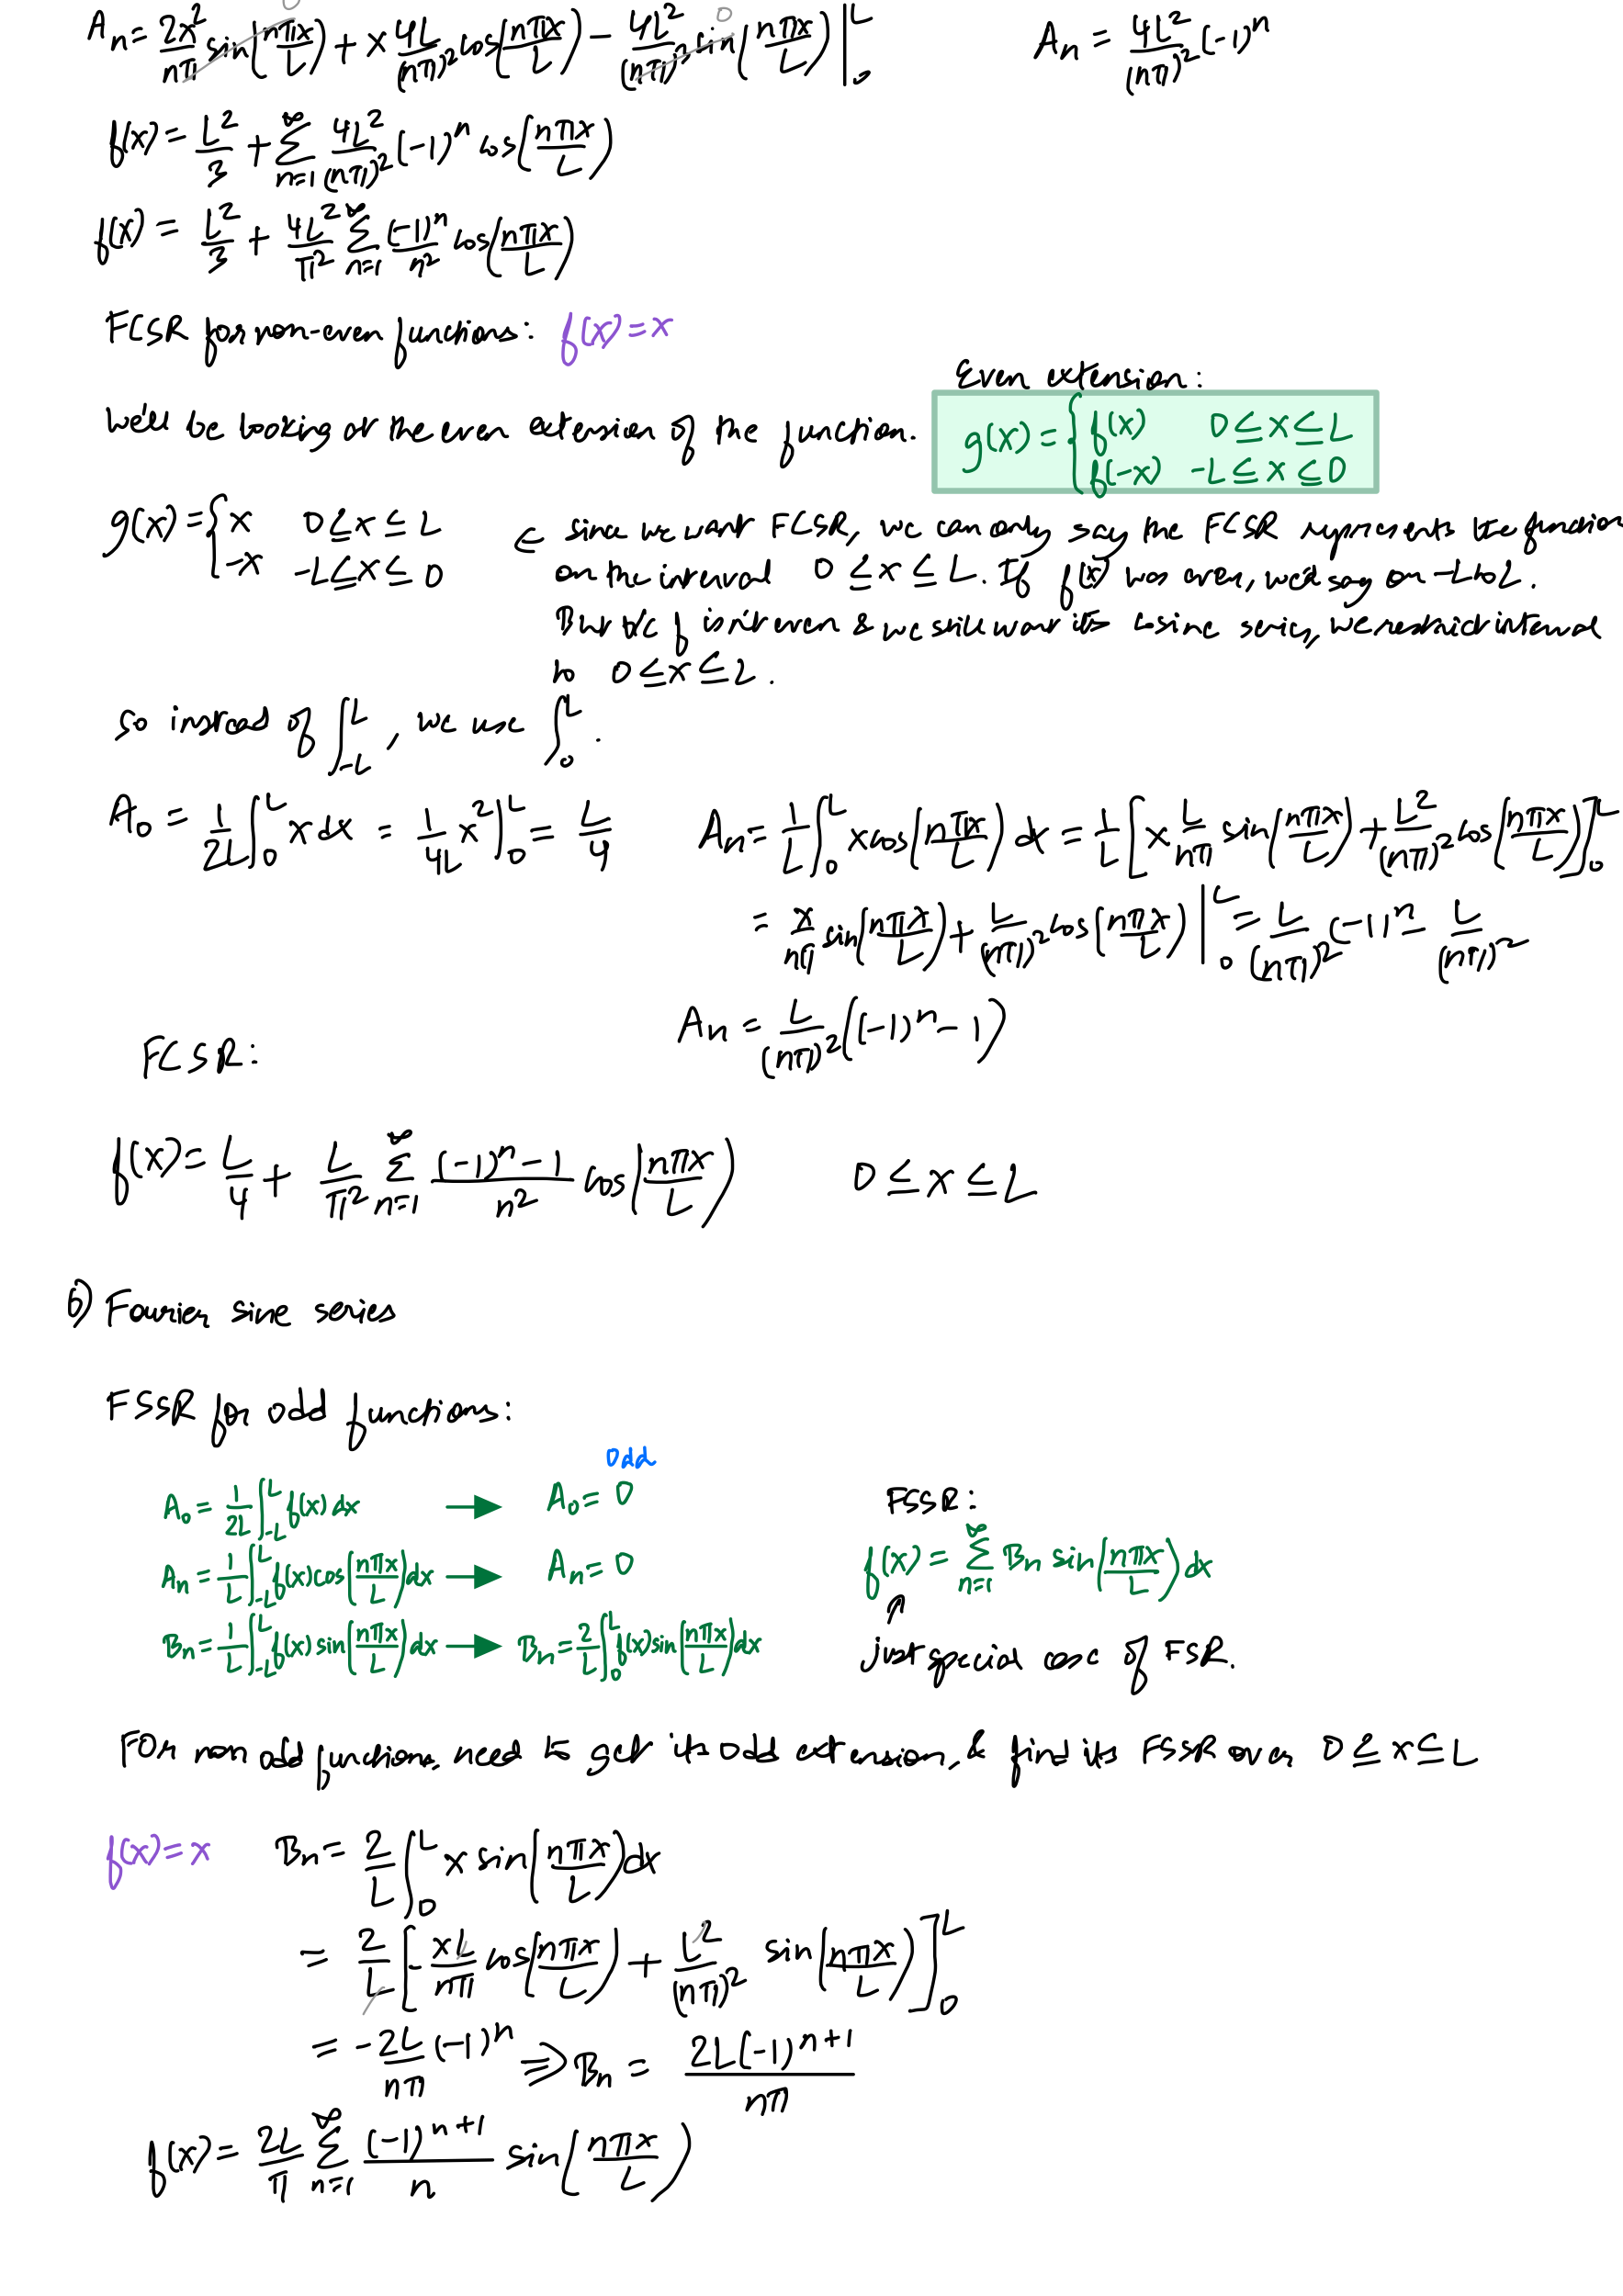 Aₙ = 2x²/nπ sin(nπx/L) + x 4L/(nπ)² cos(nπx/L) − 4L²/(nπ)³ sin(nπx/L) |₀ᴸ    Aₙ = 4L²/(nπ)² (-1)ⁿ
0 0
f(x) = L²/3 + Σ_{n=1}^∞ 4L²/(nπ)² (-1)ⁿ cos(nπx/L)
f(x) = L²/3 + 4L²/π² Σ_{n=1}^∞ (-1)ⁿ/n² cos(nπx/L)
FCSR for non-even functions: f(x) = x
Even extension:
We'll be looking at the even extension of the function.
g(x) = { f(x)  0 ≤ x ≤ L
f(-x)  -L ≤ x ≤ 0
g(x) = { x  0 ≤ x ≤ L
-x  -L ≤ x ≤ 0
← since we want FCSR, we can only say the FCSR represents the function
on the interval 0 ≤ x ≤ L. If f(x) was even, we'd say on -L to L.
But b/c f isn't even & we still want its cosine series, we restrict interval
to 0 ≤ x ≤ L.
so instead of ∫_{-L}^{L}, we use ∫_0^L.
A₀ = 1/2L ∫_0^L x dx = 1/4L x² |₀ᴸ = L/4    Aₙ = 1/L ∫_0^L x cos(nπx/L) dx = 1/L [x L/nπ sin(nπx/L) + L²/(nπ)² cos(nπx/L)]₀ᴸ
= x/nπ sin(nπx/L) + L/(nπ)² cos(nπx/L) |₀ᴸ = L/(nπ)² (-1)ⁿ − L/(nπ)²
Aₙ = L/(nπ)² ((-1)ⁿ − 1)
FCSR:
f(x) = L/4 + L/π² Σ_{n=1}^∞ (-1)ⁿ − 1/n² cos(nπx/L)    0 ≤ x ≤ L
6) Fourier sine series
FSSR for odd functions:
odd
A₀ = 1/2L ∫_{-L}^{L} f(x) dx → A₀ = 0
Aₙ = 1/L ∫_{-L}^{L} f(x) cos(nπx/L) dx → Aₙ = 0
Bₙ = 1/L ∫_{-L}^{L} f(x) sin(nπx/L) dx → Bₙ = 2/L ∫_0^L f(x) sin(nπx/L) dx
FSSR:
f(x) = Σ_{n=1}^∞ Bₙ sin(nπx/L) dx
↗
just special case of FSR.
For non odd functions, need to get its odd extension, & find its FSSR over 0 ≤ x ≤ L
f(x) = x    Bₙ = 2/L ∫_0^L x sin(nπx/L) dx
= 2/L [- xL/nπ cos(nπx/L) + L²/(nπ)² sin(nπx/L)]₀ᴸ
= -2L/nπ (-1)ⁿ ⇒ Bₙ = 2L(-1)ⁿ⁺¹/nπ
f(x) = 2L/π Σ_{n=1}^∞ (-1)ⁿ⁺¹/n sin(nπx/L)